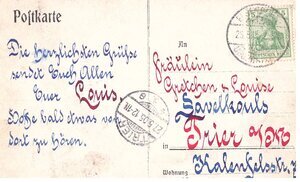 Postkarte
Die herzlichsten Grüße
sendet Euch Allen
Euer Louis.
Hoffe bald etwas von
dort zu hören.
An
Fräulein
Gretchen & Louise
Savelkouls
Trier a/M
Wohnung Kalenfelsstr. 7
TRIER
27.5.05.12-1N